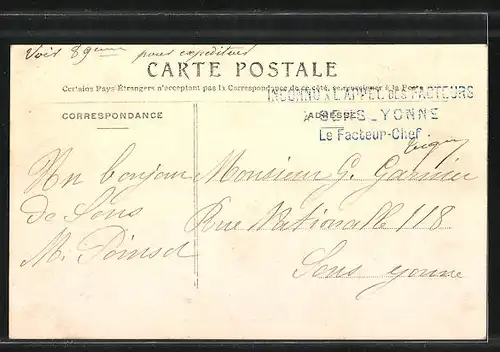 Voir 89ème pour expéditeur
CARTE POSTALE
Certains Pays Étrangers n'acceptent pas la Correspondance de ce côté, se renseigner à la Poste
INCONNU A L'APPEL DES FACTEURS
SENS_YONNE
Le Facteur-Chef.
CORRESPONDANCE
ADRESSE
Un bonjour
de Sens
M. Poinsot
Monsieur G. Garnier
Rue Nationalle 118
Sens yonne